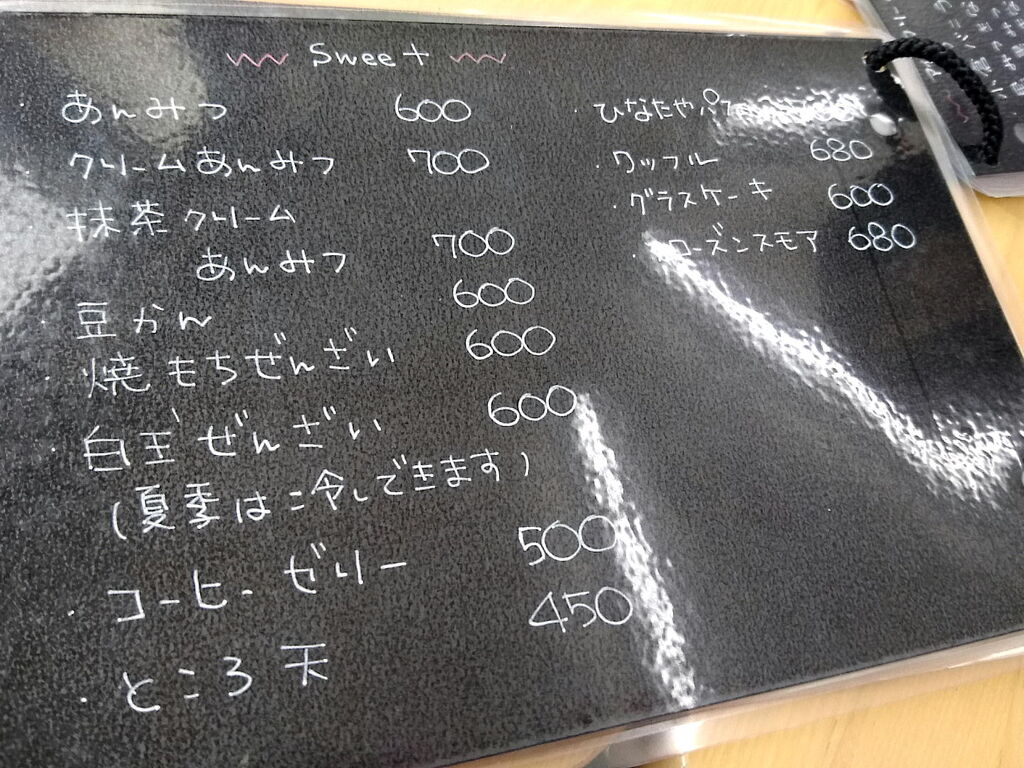 Sweet
あんみつ 600
クリームあんみつ 700
抹茶クリーム
あんみつ 700
・豆かん 600
・焼もちぜんざい 600
・白玉ぜんざい 600
(夏季は冷しできます)
・コーヒーゼリー 500
・ところ天 450
・ひなたやパフ
・ワッフル 680
・グラスケーキ 600
・ローズンスモア 680